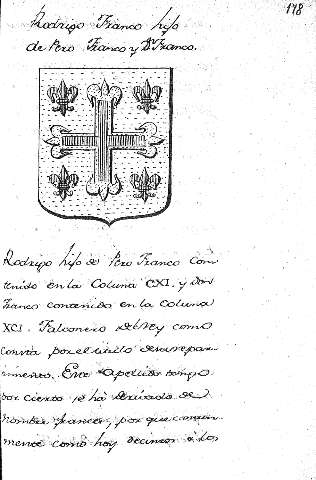 178
Rodrigo Franco hijo
de Pero Franco y Dº Franco.
Rodrigo hijo de Pero Franco con
tenido en la Coluna CXI. y don
Franco contenido en la Coluna
XCI. Falconero del Rey como
consta por el dicho
Este Apelido tengo
por cierto se ha derivado de
hombre frances, por que comun
mente como hoy decimos a los